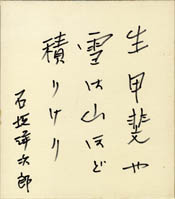 生甲斐や
雪は山ほど
積りけり
石坂洋次郎